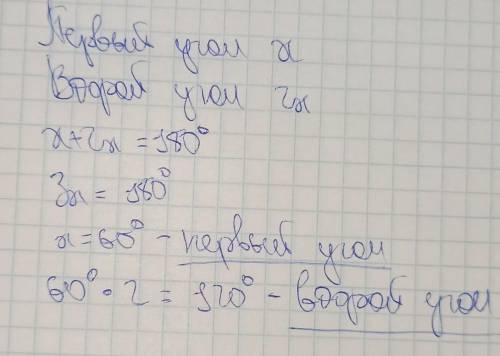 Первый угол x
Второй угол 2x
x+2x = 180°
3x = 180°
x = 60° - первый угол
60° • 2 = 120° - второй угол